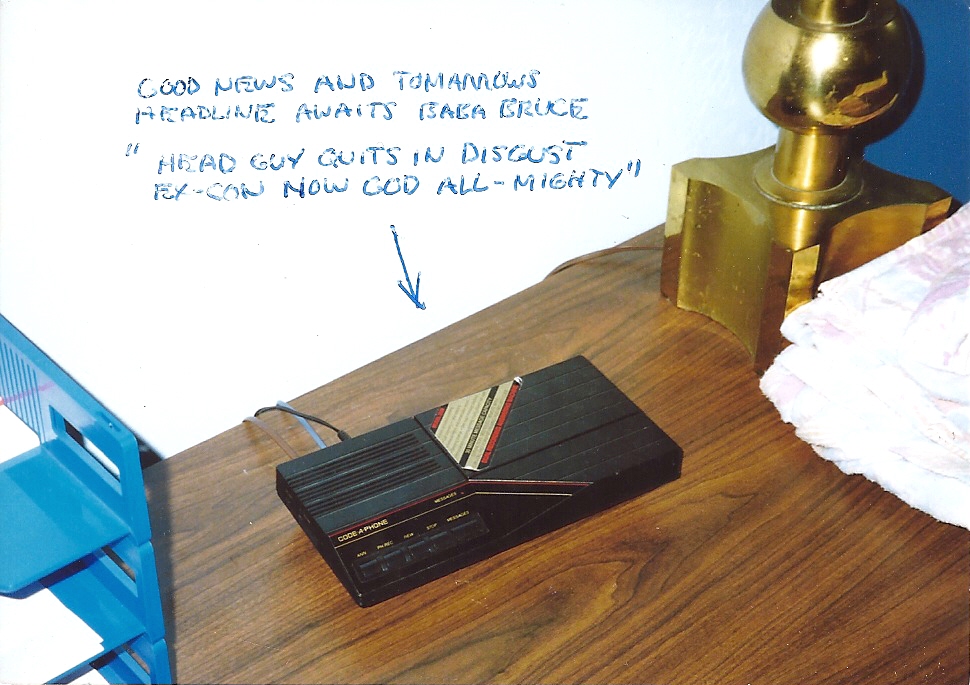 GOOD NEWS AND TOMARROWS
HEADLINE AWAITS BABA BRUCE
" HEAD GUY QUITS IN DISGUST
EX-CON NOW GOD ALL-MIGHTY"
MESSAGES
CODE-A-PHONE
ANN PH.REC NEW STOP MESSAGES